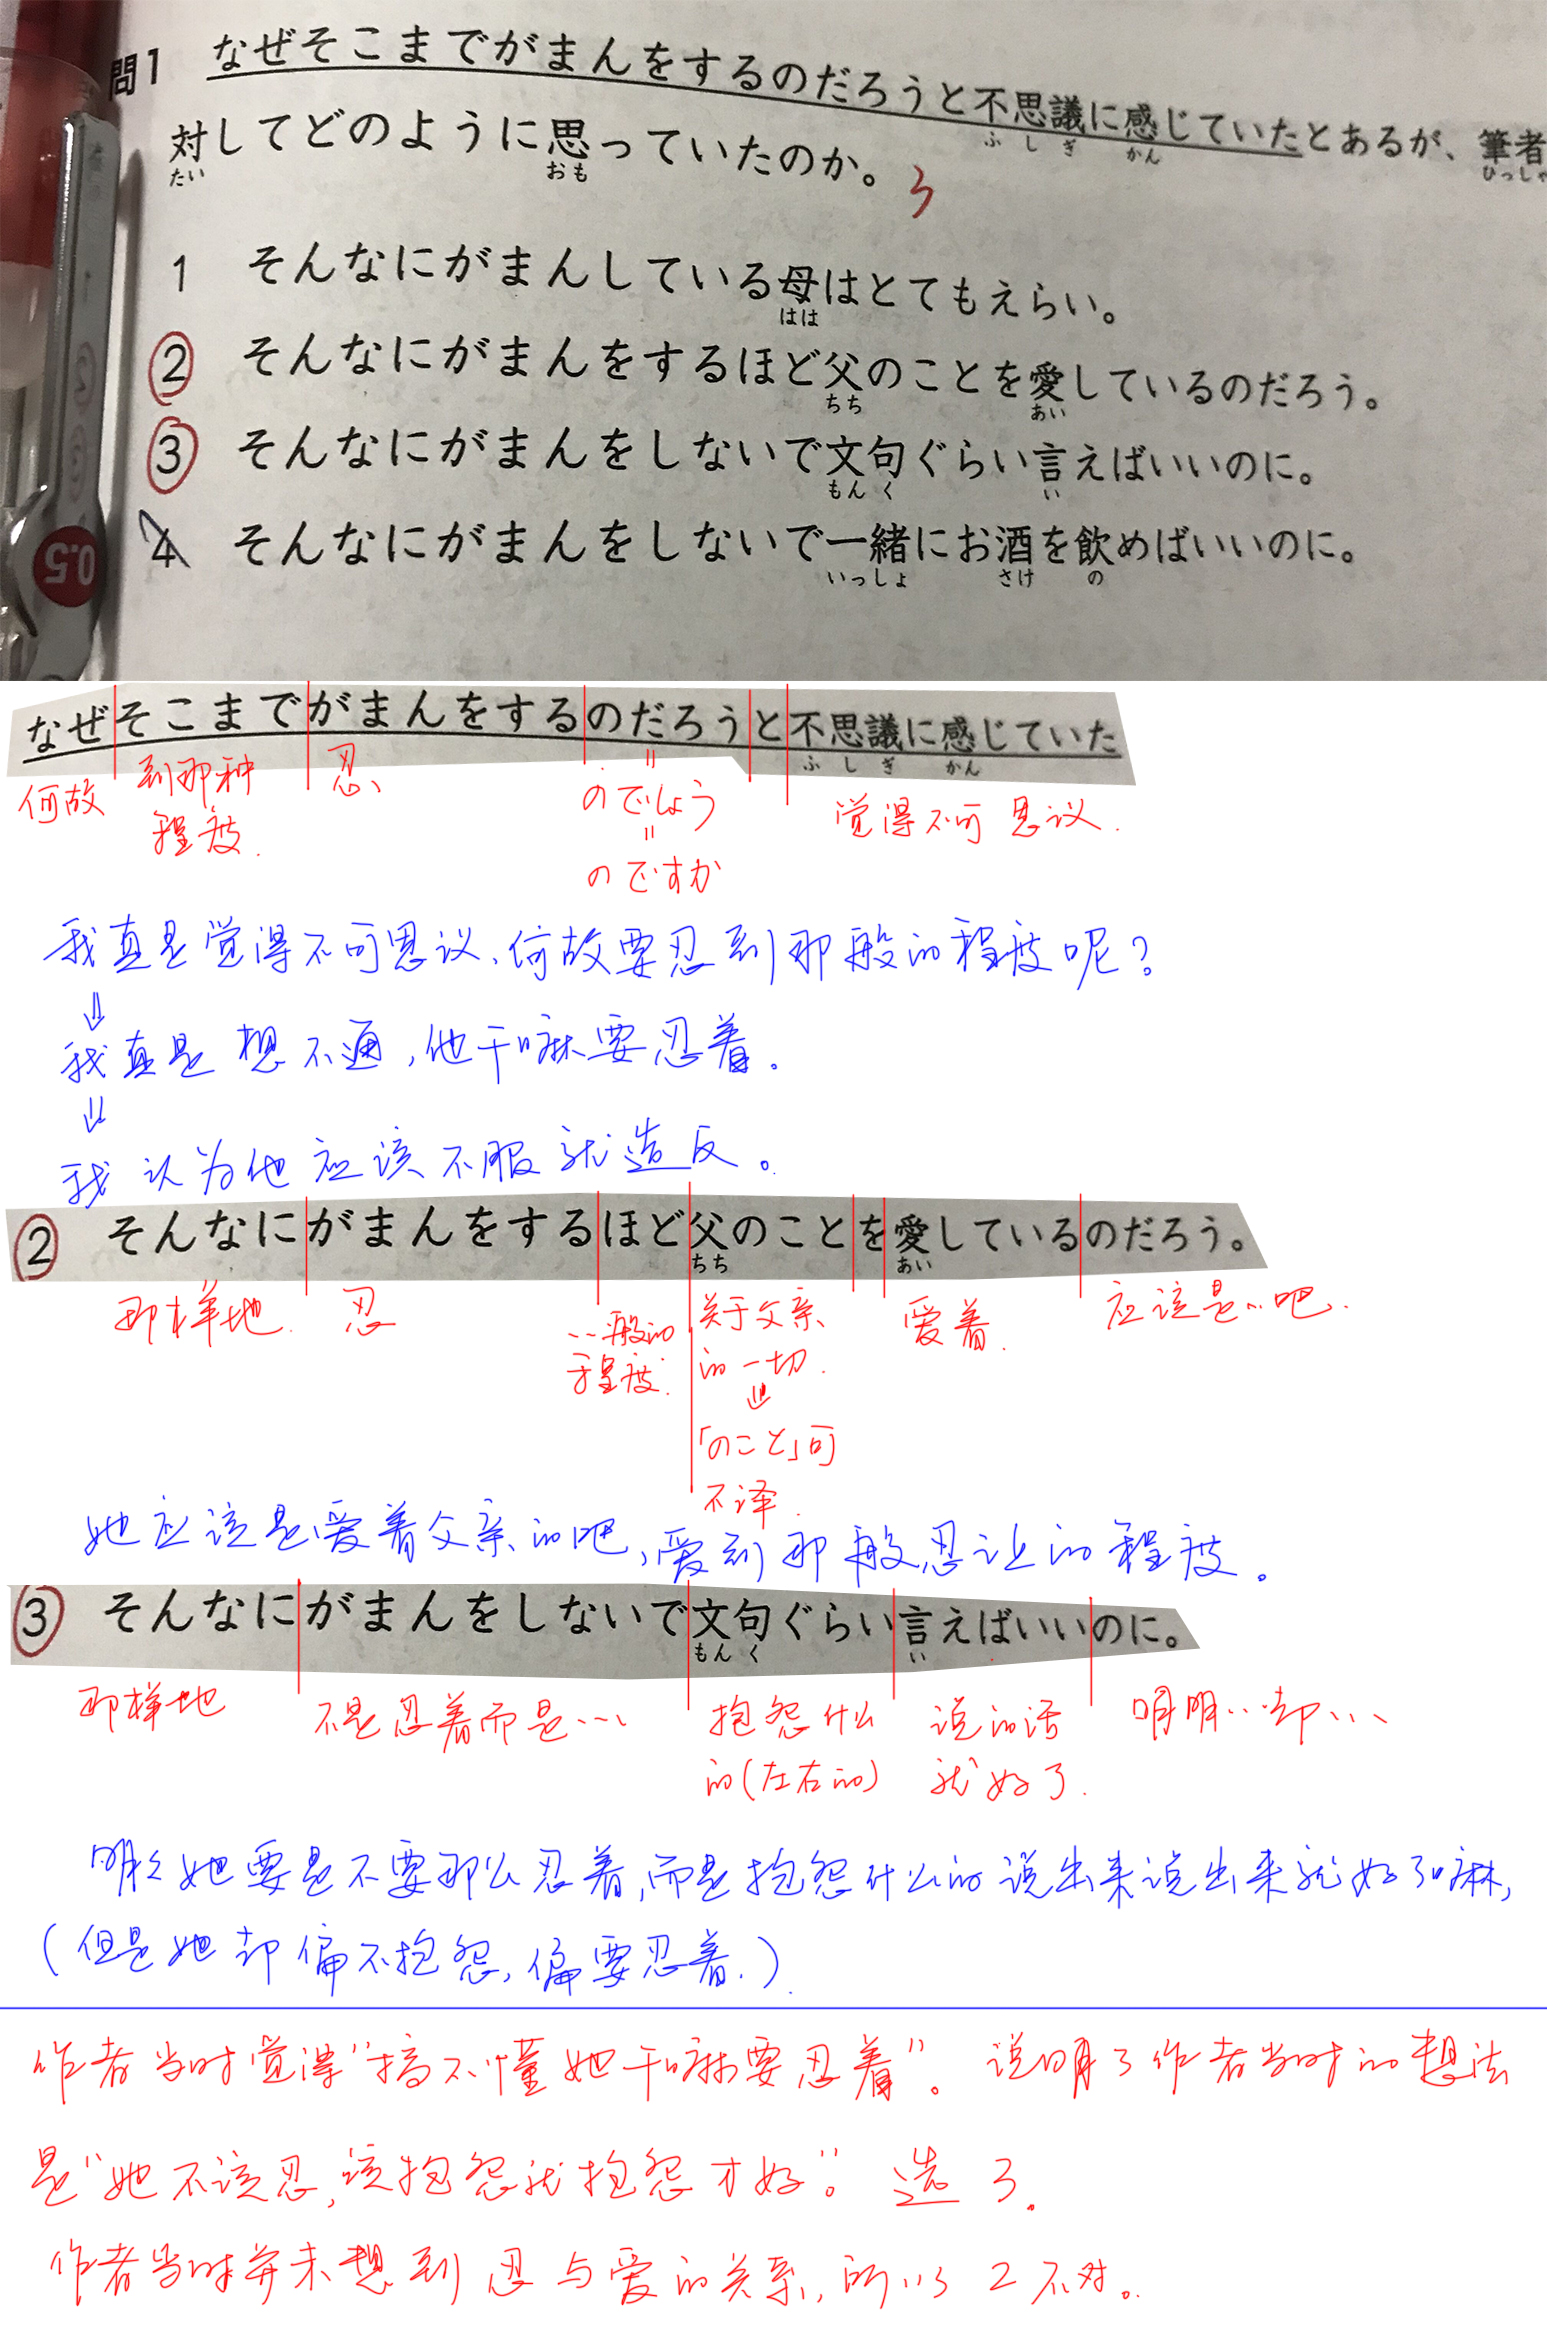 問1 なぜそこまでがまんをするのだろうと不思議に感じていたとあるが、筆者
ふしぎ かん ひっしゃ
対してどのように思っていたのか。 3
たい おも
1 そんなにがまんしている母はとてもえらい。
はは
② そんなにがまんをするほど父のことを愛しているのだろう。
ちち あい
③ そんなにがまんをしないで文句ぐらい言えばいいのに。
もんく い
4 そんなにがまんをしないで一緒にお酒を飲めばいいのに。
いっしょ さけ の
0.5
なぜそこまでがまんをするのだろうと不思議に感じていた
ふしぎ かん
何故 到那种程度. 忍 〃のでしょう〃のですか 觉得不可思议.
我真是觉得不可思议、何故要忍到那般的程度呢?
⇓
我真是想不通,他干嘛要忍着.
⇓
我认为他应该不服就造反。
② そんなにがまんをするほど父のことを愛しているのだろう。
ちち あい
那样地. 忍 ...般的程度. 关于父亲的一切.⇓「のこと」可不译. 爱着. 应该是..吧.
她应该是爱着父亲的吧,爱到那般忍让的程度。
③ そんなにがまんをしないで文句ぐらい言えばいいのに。
もんく い
那样地 不是忍着而是... 抱怨什么的(左右的) 说的话就好了. 明明..却...
明明她要是不要那么忍着,而是抱怨什么的说出来说出来就好了嘛,
(但是她却偏不抱怨,偏要忍着.)
作者当时觉得"搞不懂她干嘛要忍着"。说明了作者当时的想法
是"她不该忍,该抱怨就抱怨才好"。选3.
作者当时并未想到忍与爱的关系,所以2不对。